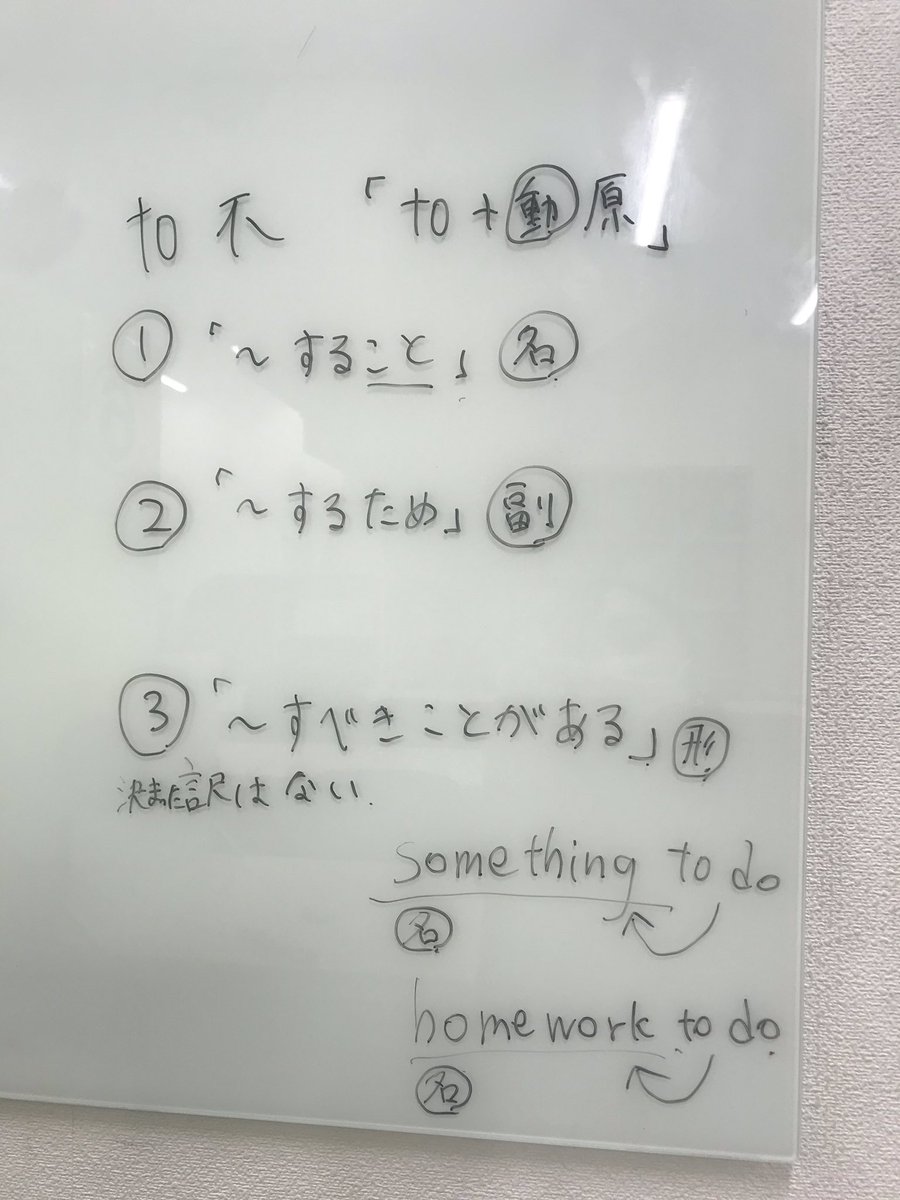 to 不 「to + 動 原」
① 「～すること」 名
② 「～するため」 副
③ 「～すべきことがある」 形
決まった訳はない.
something to do
名
homework to do
名